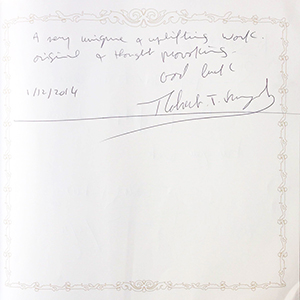 A very unique & uplifting work.
original & thought provoking.
God luck
1/12/2014
Robert T.